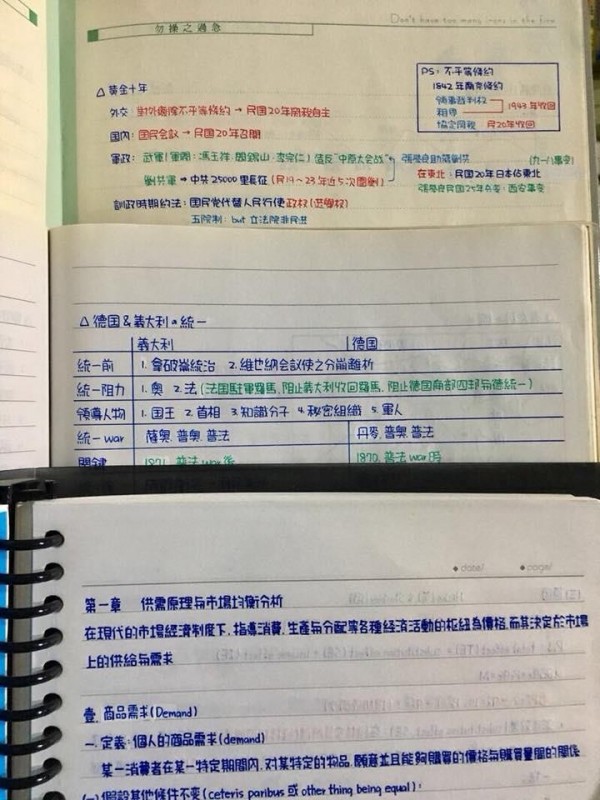 Don't have too many irons in the fire
勿操之過急
△ 黃金十年
PS: 不平等條約
1842年南京條約
領事裁判权
租界 → 1943年收回
協定関税 民20年收回
外交: 對外廢除不平等條約 → 民国20年関税自主
国內: 国民会議 → 民国20年召開
軍政: 武軍(軍閥:馮玉祥.閻錫山.李宗仁)造反"中原大会战"
張學良助蔣 (九一八事变)
剿共軍 → 中共25000里長征 (民19~23年近5次圍剿)
在東北: 民国20年日本佔東北
張學良民国25年兵变: 西安事变
訓政時期約法: 国民党代替人民行使政权(选舉权)
五院制: but 立法院非民选
△ 德国&義大利の統一
義大利 德国
統一前 1. 拿破崙統治 2. 維也納会议使之分崩離析
統一阻力 1. 奧 2. 法 (法国駐軍羅馬,阻止義大利收回羅馬,阻止德国南部四邦与德統一)
領導人物 1. 国王 2. 首相 3. 知識分子 4. 秘密組織 5. 軍人
統一war 薩奧.普奧.普法 丹麥.普奧.普法
関鍵 1871.普法war後 1870.普法war時
date/ page/
第一章 供需原理与市場均衡分析
在現代的市場經済制度下,指導消費,生產与分配等各種経済活動的枢紐為價格,而其決定於市場
上的供給与需求
壹.商品需求(Demand)
一.定義:個人的商品需求(demand)
某一消費者在某一特定期間內,对某特定的物品,願意並且能夠購買的價格与購買量間的関係
(一)假設其他條件不变(ceteris paribus 或 other thing being equal):